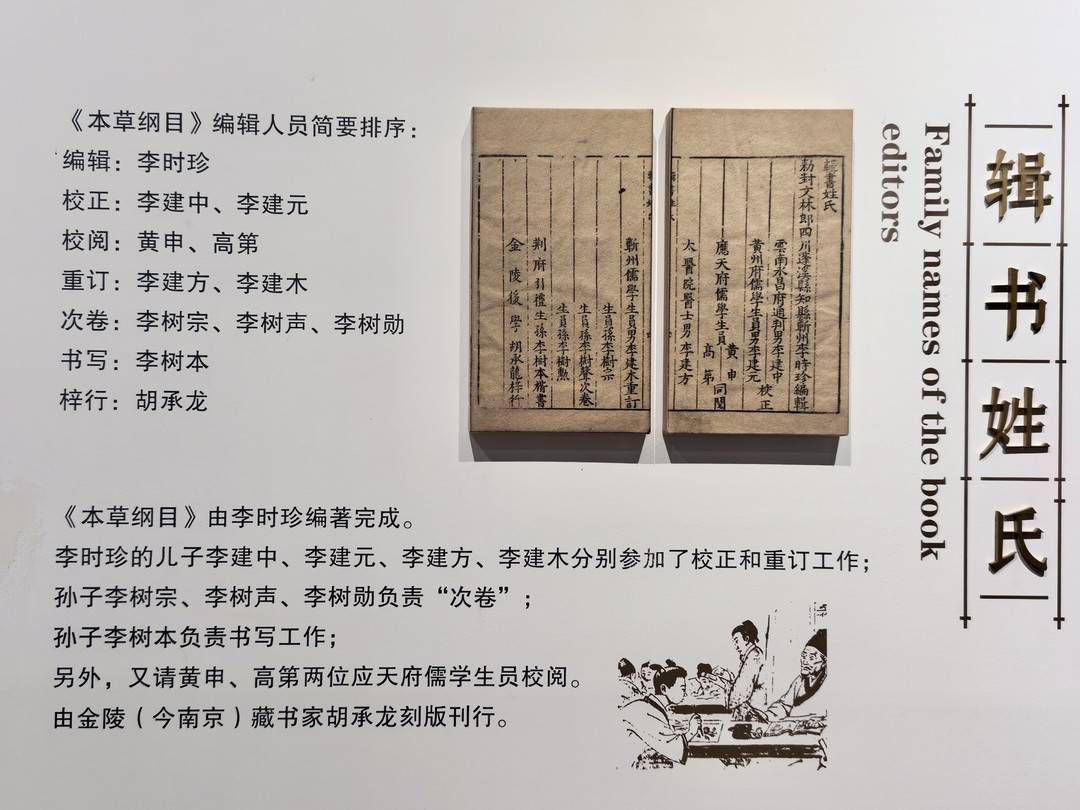 辑书姓氏
Family names of the book
editors
《本草纲目》编辑人员简要排序：
编辑：李时珍
校正：李建中、李建元
校阅：黄申、高第
重订：李建方、李建木
次卷：李树宗、李树声、李树勋
书写：李树本
梓行：胡承龙
輯書姓氏
勑封文林郎四川蓬溪縣知縣蘄州李時珍編輯
雲南永昌府通判男李建中
黃州府儒學生員男李建元
校正
應天府儒學生員
黃申
高第
同閱
太醫院醫士男李建方
蘄州儒學生員男李建木重訂
生員孫李樹宗
生員孫李樹聲次卷
生員孫李樹勳
荆府引禮生孫李樹本楷書
金陵後學胡承龍梓行
《本草纲目》由李时珍编著完成。
李时珍的儿子李建中、李建元、李建方、李建木分别参加了校正和重订工作；
孙子李树宗、李树声、李树勋负责“次卷”；
孙子李树本负责书写工作；
另外，又请黄申、高第两位应天府儒学生员校阅。
由金陵（今南京）藏书家胡承龙刻版刊行。